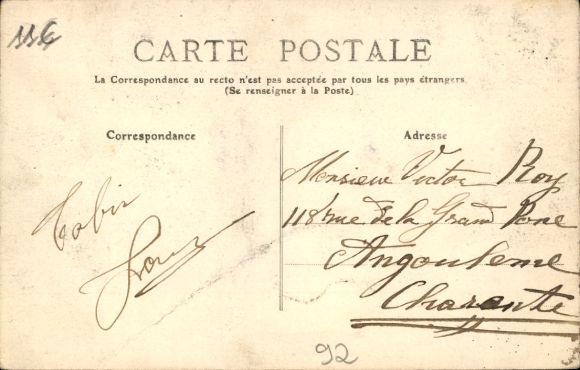 11€
CARTE POSTALE
La Correspondance au recto n'est pas acceptée par tous les pays étrangers.
(Se renseigner à la Poste)
Correspondance
Adresse
Monsieur Victor Roy
118 rue de la Grand Fone
Angouleme
Charente
92